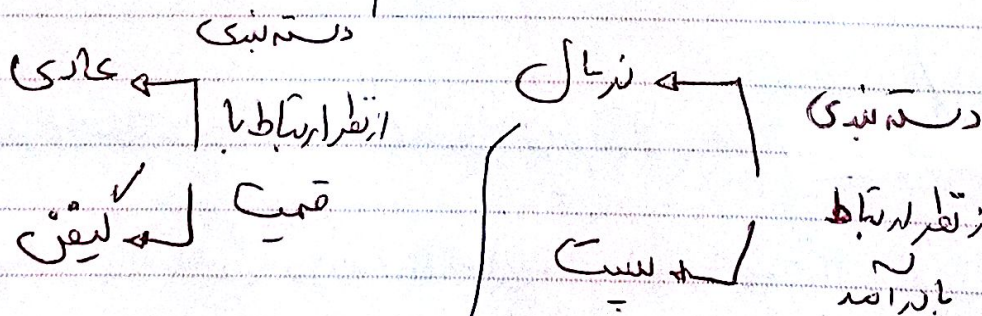 دسته بندی
از نظر ارتباط
با درآمد
نرمال
پست
دسته بندی
از نظر ارتباط با
قیمت
عادی
گیفن